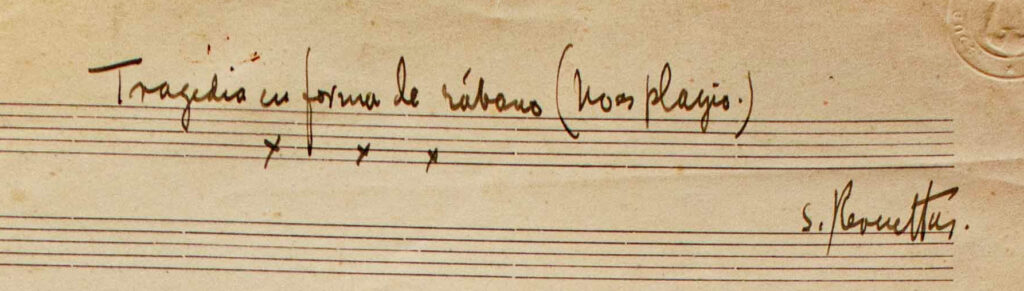 Tragédia en forma de rábano (No es plagio.)
x x x
S. Revueltas.